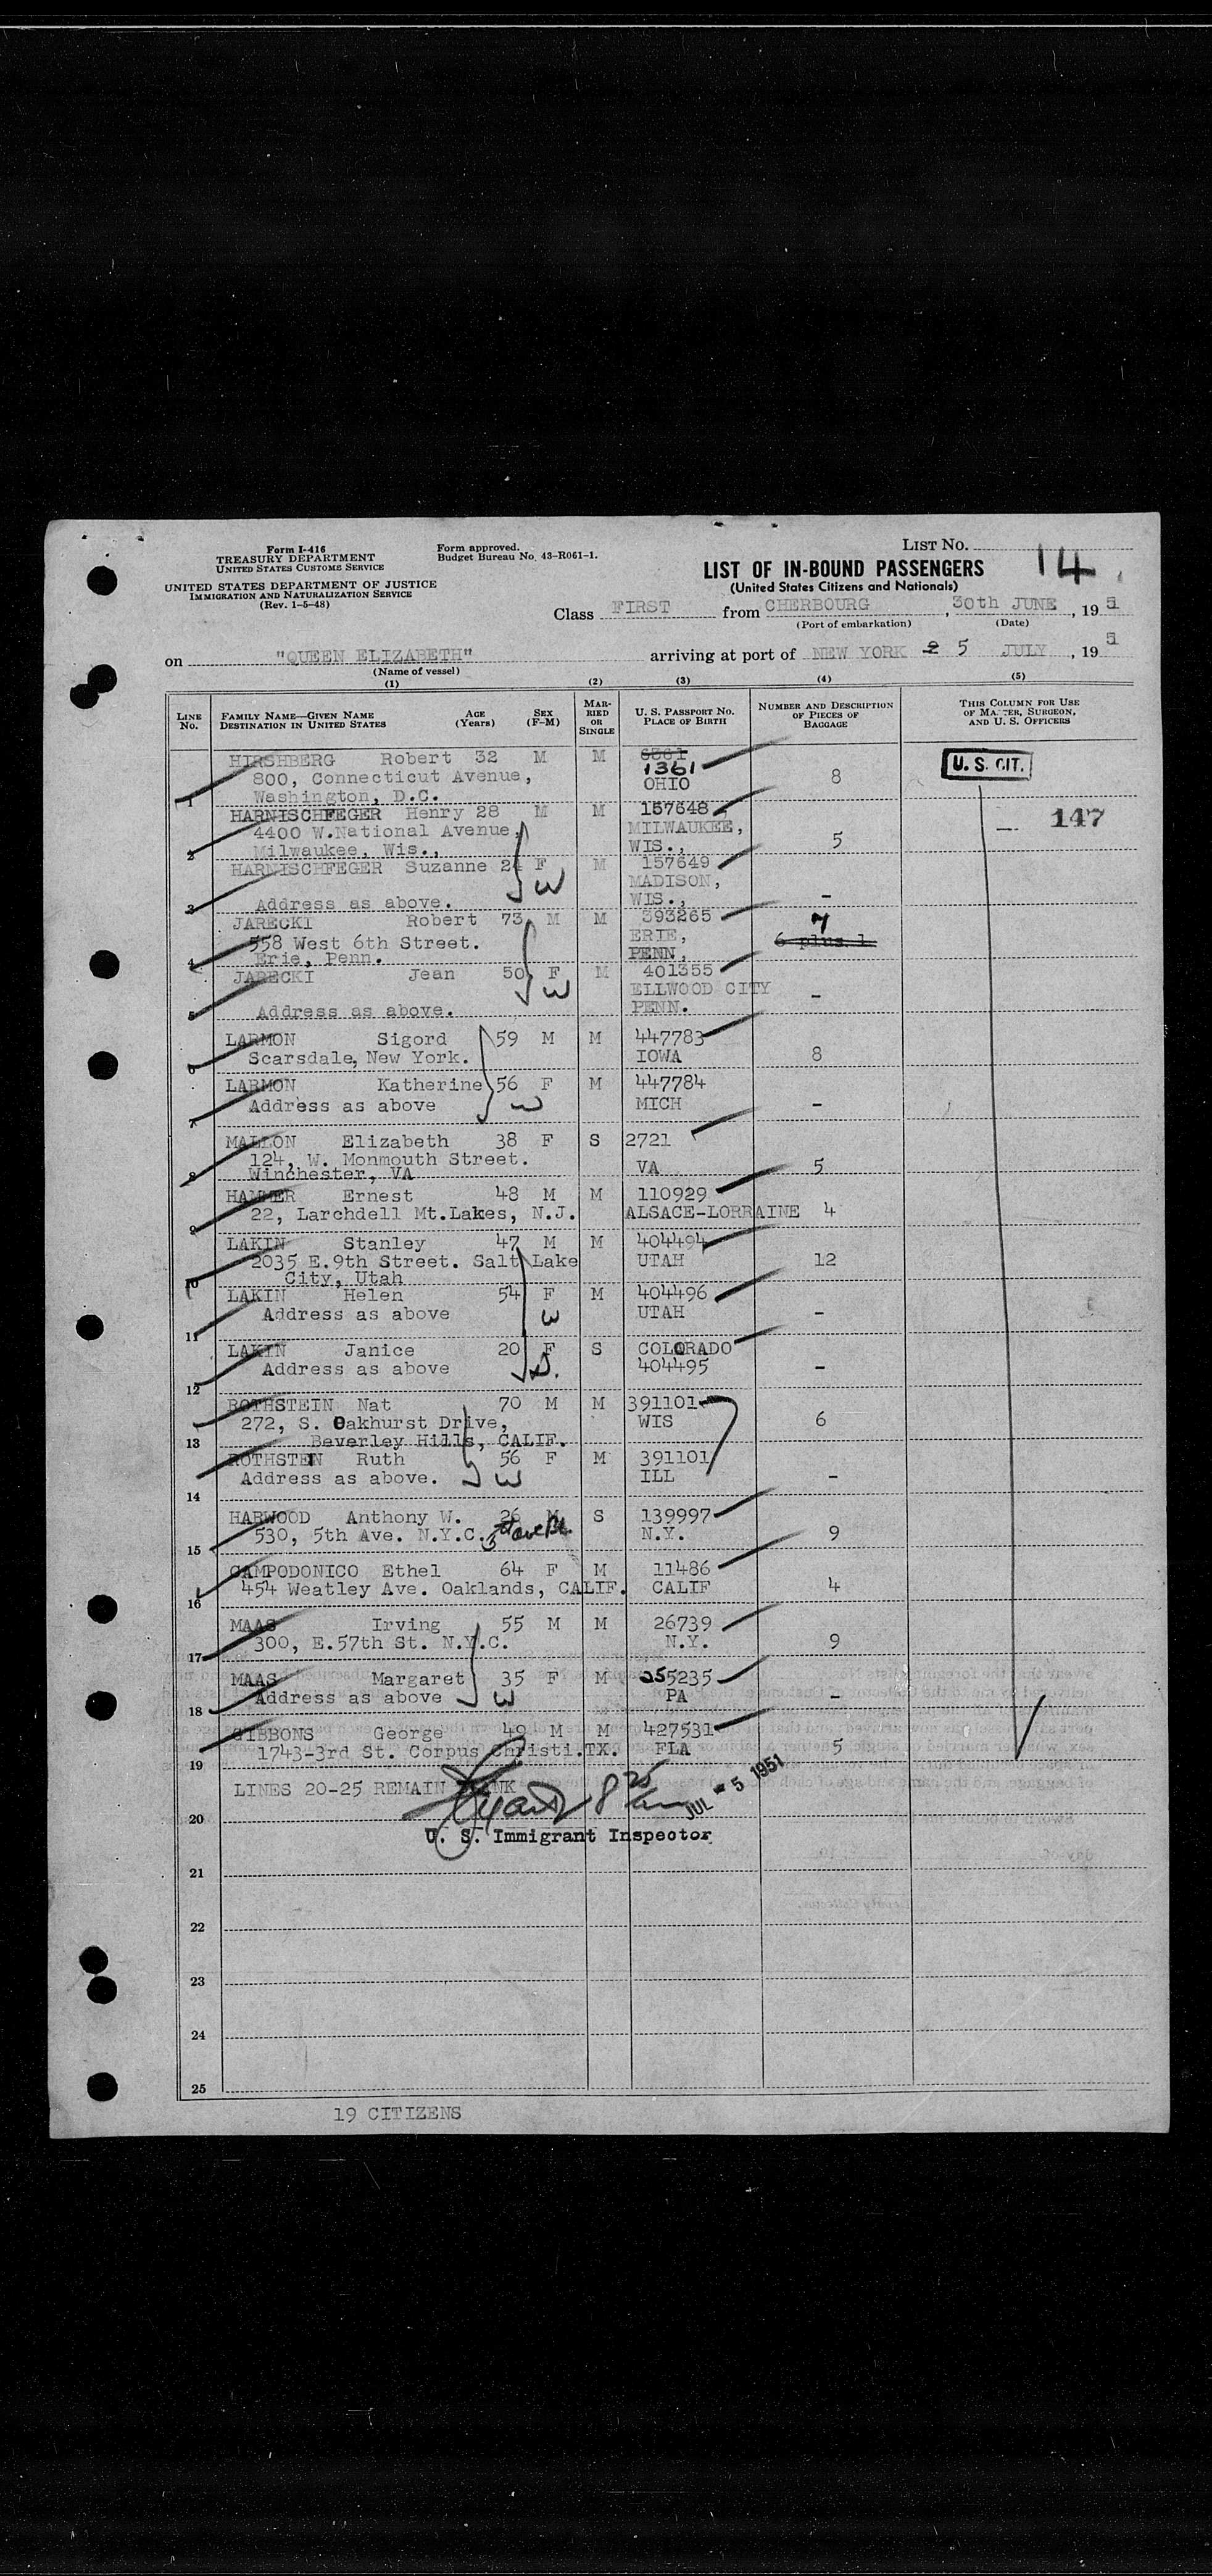 Form I-416
TREASURY DEPARTMENT
UNITED STATES CUSTOMS SERVICE
UNITED STATES DEPARTMENT OF JUSTICE
IMMIGRATION AND NATURALIZATION SERVICE
(Rev. 1-5-48)
Form approved.
Budget Bureau No. 43-R061-1.
LIST NO. 14
LIST OF IN-BOUND PASSENGERS
(United States Citizens and Nationals)
Class FIRST from CHERBOURG, 30th JUNE, 195
(Port of embarkation) (Date)
on "QUEEN ELIZABETH" arriving at port of NEW YORK 5 JULY, 195
(Name of vessel)
(1) (2) (3) (4) (5)
LINE NO.
FAMILY NAME—GIVEN NAME
DESTINATION IN UNITED STATES
AGE (Years)
SEX (F-M)
MARRIED OR SINGLE
U. S. PASSPORT NO.
PLACE OF BIRTH
NUMBER AND DESCRIPTION OF PIECES OF BAGGAGE
THIS COLUMN FOR USE OF MASTER, SURGEON, AND U. S. OFFICERS
HIRSHBERG Robert 32 M M 6361
1361
800, Connecticut Avenue, OHIO 8 U. S. CIT.
1 Washington, D.C.
HARNISCHFEGER Henry 28 M M 157648 147
4400 W.National Avenue, MILWAUKEE,
2 Milwaukee, Wis., WIS., 5
HARNISCHFEGER Suzanne 24 F M 157649
W MADISON,
3 Address as above. WIS., -
JARECKI Robert 73 M M 393265 7
558 West 6th Street. ERIE, 6 plus 1
4 Erie, Penn. PENN,
JARECKI Jean 50 F M 401355
W ELLWOOD CITY -
5 Address as above. PENN.
LARMON Sigord 59 M M 447783
6 Scarsdale, New York. IOWA 8
LARMON Katherine 56 F M 447784
7 Address as above W MICH -
MALLON Elizabeth 38 F S 2721
124, W. Monmouth Street.
8 Winchester, VA VA 5
HAMMER Ernest 48 M M 110929
9 22, Larchdell Mt.Lakes, N.J. ALSACE-LORRAINE 4
LAKIN Stanley 47 M M 404494
2035 E.9th Street. Salt Lake UTAH 12
10 City, Utah
LAKIN Helen 54 F M 404496
11 Address as above W UTAH -
LAKIN Janice 20 F S COLORADO
12 Address as above D. 404495 -
ROTHSTEIN Nat 70 M M 391101
272, S. Oakhurst Drive, WIS 6
13 Beverley Hills, CALIF.
ROTHSTEIN Ruth 56 F M 391101
14 Address as above. W ILL -
HARWOOD Anthony W. 26 M S 139997
15 530, 5th Ave. N.Y.C. N.Y. 9
CAMPODONICO Ethel 64 F M 11486
16 454 Weatley Ave. Oaklands, CALIF. CALIF 4
MAAS Irving 55 M M 26739
17 300, E.57th St. N.Y.C. N.Y. 9
MAAS Margaret 35 F M 255235
18 Address as above W PA -
GIBBONS George 49 M M 427531
19 1743-3rd St. Corpus Christi.TX. FLA 5
LINES 20-25 REMAIN BLANK
JUL - 5 1951
20
U. S. Immigrant Inspector
21
22
23
24
25
19 CITIZENS